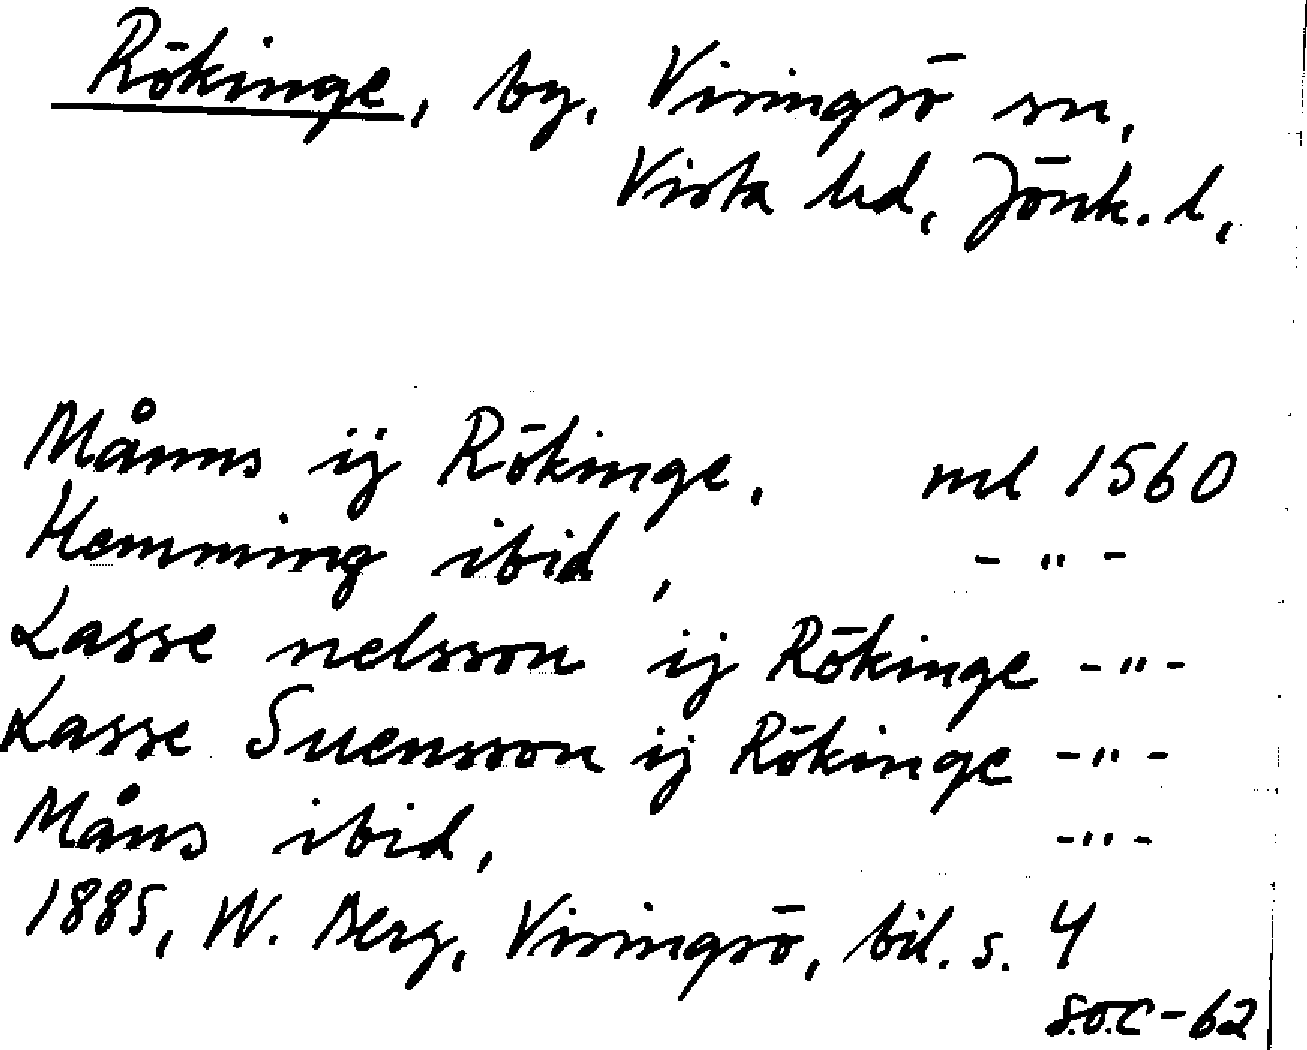 Rökinge, by, Visingsö sn,
Vista hd, Jönk. l,
Månns ij Rökinge, ml 1560
Hemming ibid, - " -
Lasse nelsson ij Rökinge - " -
Lasse Suensson ij Rökinge - " -
Måns ibid, - " -
1885, W. Berg, Visingsö, bil. s. 4
S.O.C-62